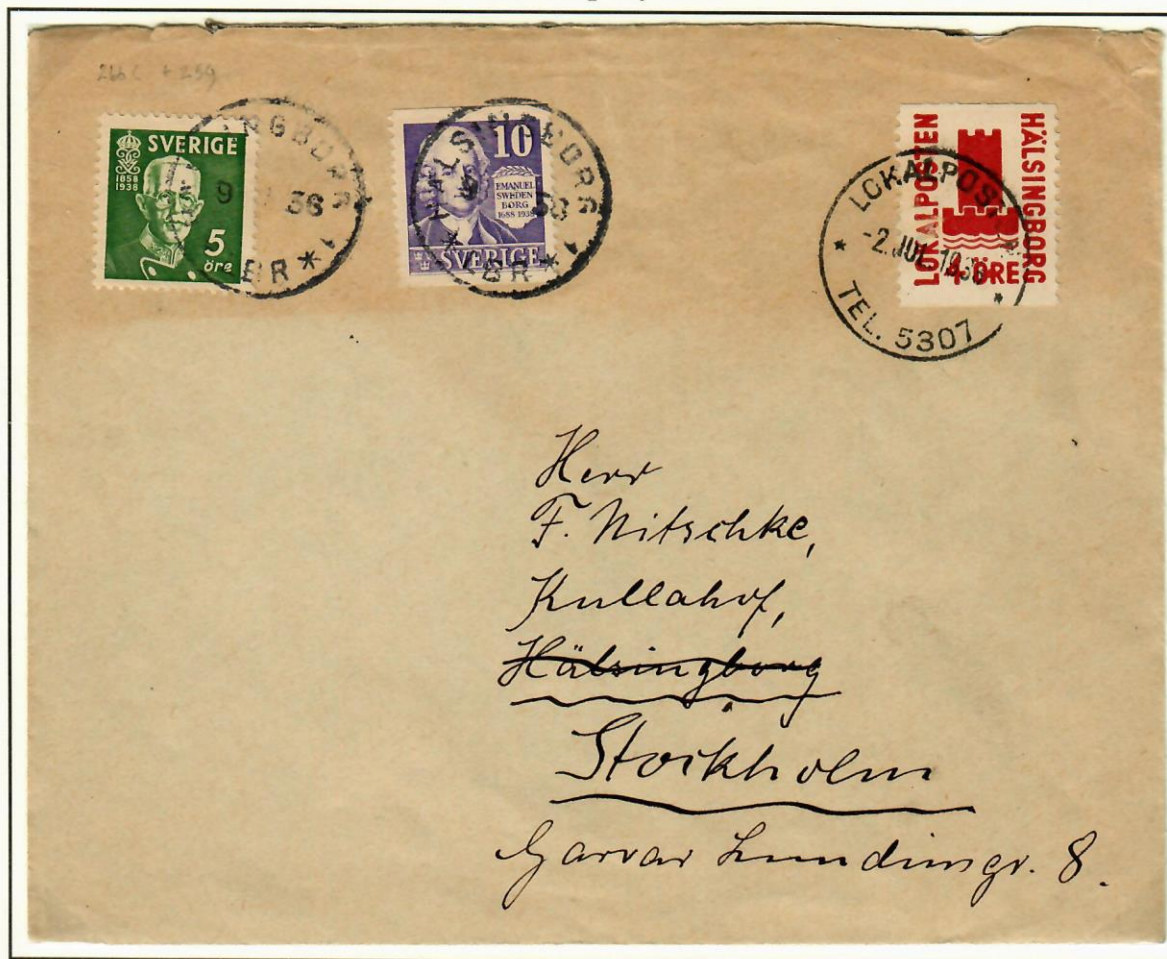 266 c + 259
SVERIGE
1858
1938
5
öre
INGBORG 1
9 38
LBR
10
EMANUEL
SWEDEN
BORG
1688 1938
SVERIGE
HÄLSINGBORG 1
38
LBR
LOKALPOSTEN
HÄLSINGBORG
ÖRE
LOKALPOS
-2. JUL. 1938
TEL. 5307
Herr
F. Nitschke,
Kullahof,
Hälsingborg
Stockholm
Garvar Lundinsgr. 8.